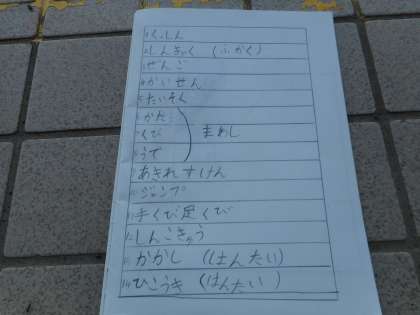 1 くっしん
2 しんきゃく (ふかく)
3 ぜんご
4 かいせん
5 たいそく
6 かた
7 くび まわし
8 うで
9 あきれすけん
10 ジャンプ
11 手くび足くび
12 しんこきゅう
13 かかし (はんたい)
14 ひこうき (はんたい)